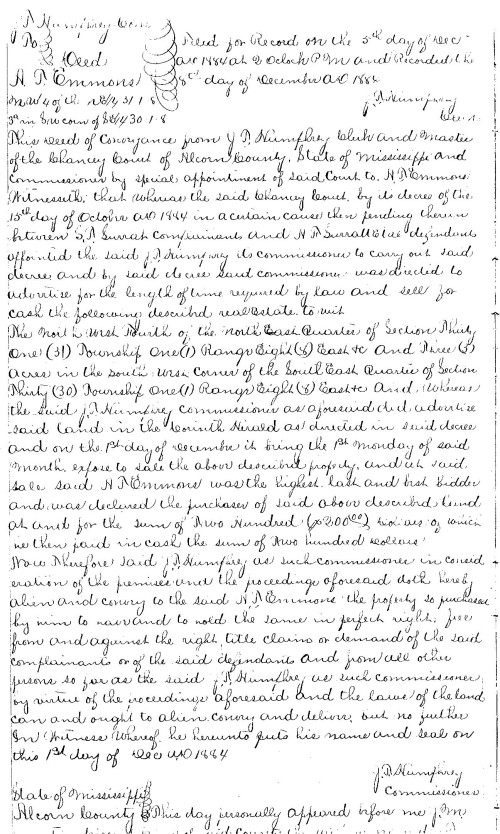 J.P. Humphrey Com
To
Deed
A.P. Emmons
NW 1/4 of the NE 1/4 31 1 8
3a in SW corn of SE 1/4 30 1 8
Filed for Record on the 5th day of Dec
AD 1884 at 2 Oclock P.M and Recorded the
8th day of December AD 1884
J.P. Humphrey
Clerk
This Deed of Conveyance from J.P. Humphrey Clerk and Master
of the Chancey Court of Alcorn County, State of Mississippi and
Commissioner by special appointment of said Court to A.P. Emmons
Witnesseth; that whereas the said Chancy Court, by its decree of the
15th day of October AD 1884 in a certain cause then pending therein
between S.P. Surratt complainants and A.P. Surratt Etal defendants
appointed the said J.P. Humphrey its commissioner to carry out said
decree and by said decree said commissioner was directed to
advertise for the length of time required by law and sell for
cash the following described real Estate to wit
The North West Fourth of the North East Quarter of Section Thirty
One (31) Township One (1) Range Eight (8) East &c And Three (3)
acres in the South West Corner of the South East Quarter of Section
Thirty (30) Township One (1) Range Eight (8) East &c And, Whereas
the said J.P. Humphrey commissioner as aforesaid did advertise
said land in the Corinth Herald as directed in said decree
and on the 1st day of December it being the 1st Monday of said
Month expose to sale the above described property, and at said
sale said A.P. Emmons was the highest last and best bidder
and was declared the purchaser of said above described land
at and for the sum of Two Hundred ($200.00) Dollars of which
he then paid in cash the sum of Two hundred Dollars
Now Therefore said J.P. Humphrey as such commissioner in consid
eration of the premises and the proceedings aforesaid doth hereby
alien and convey to the said A.P. Emmons the property so purchased
by him to have and to hold the same in perfect right, free
from and against the right, title claims or demand of the said
complainants or of the said defendants and from all other
persons so far as the said J.P. Humphrey as such commissioner,
by virtue of the proceedings aforesaid and the laws of the land
can and ought to alien convey and deliver, but no further
In Witness Whereof he hereunto puts his name and seal on
this 1st day of Dec AD 1884
J.P. Humphrey
Commissioner
State of Mississippi
Alcorn County This day personally appeared before me J.M.